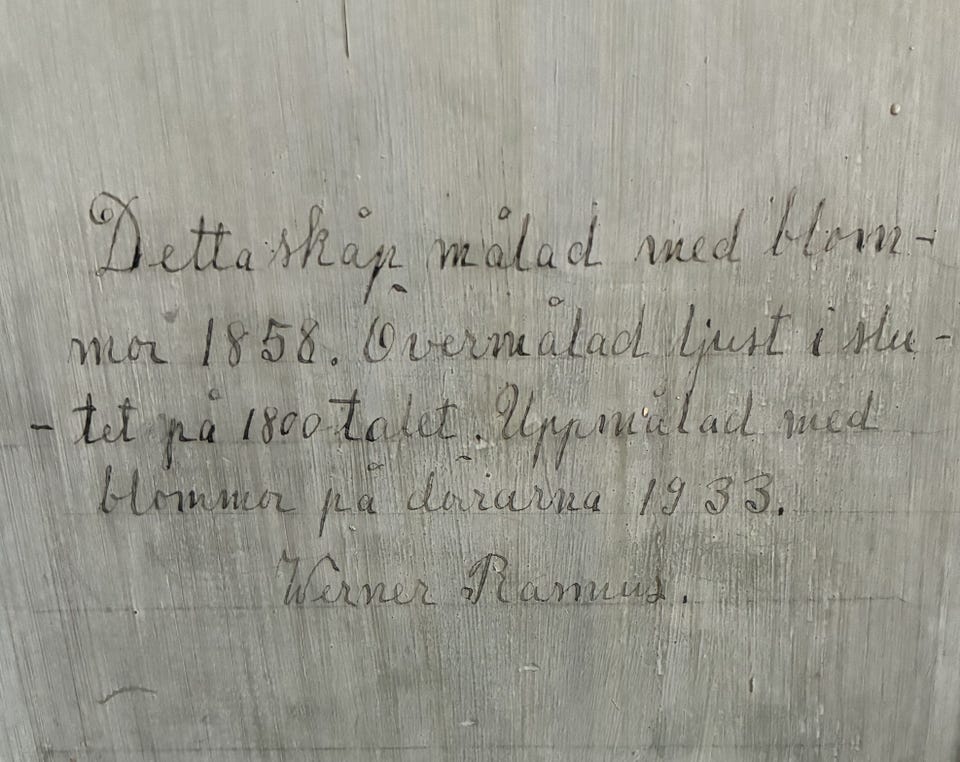 Detta skåp målad med blom-
mor 1858. Övermålad ljust i slu-
- tet på 1800 talet. Uppmålad med
blommor på dörarna 1933.
Werner Ramus.